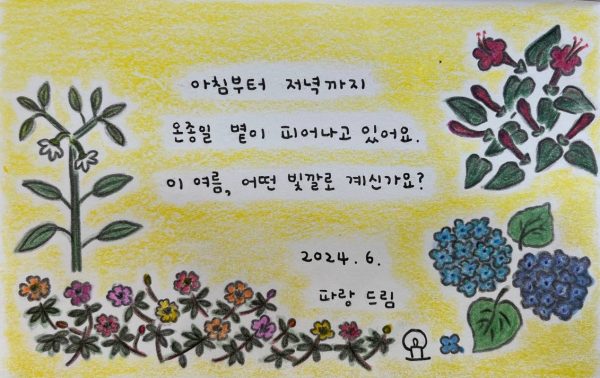 아침부터 저녁까지
온종일 볕이 피어나고 있어요.
이 여름, 어떤 빛깔로 계신가요?
2024. 6.
파랑 드림